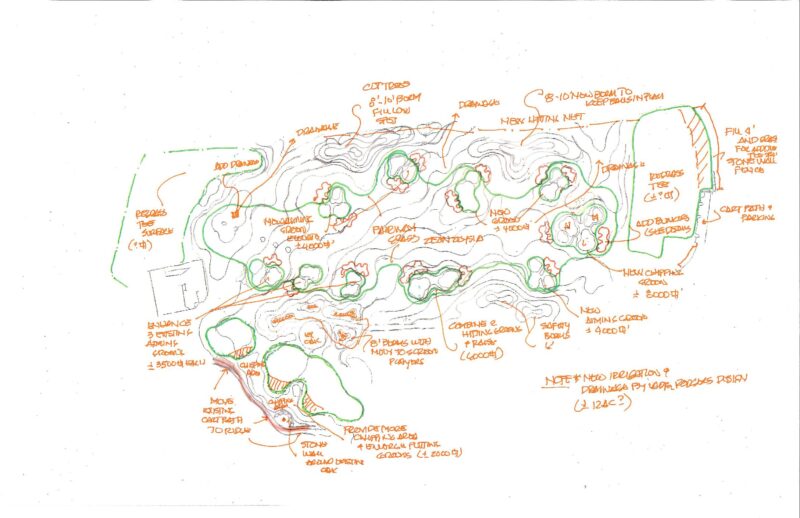 CUT TREES
8'-10' BERM
FILL LOW
SPOT
DRAINAGE
8-10' NEW BERM TO
KEEP BALLS IN PLAY
DRAINAGE
NEW HITTING NET
FILL 4'
AND
STONE WALL
FENCE
ADD DRAINAGE
DRAINAGE
REGRASS
TEE
(±?⌀)
REGRASS
TEE
SURFACE
(?⌀)
NEW AIMING
GREEN
±4000⌀'
NEW
GREEN
±4000⌀'
CART PATH &
PARKING
FAIRWAY
GRASS ZEON ZOYSIA
ADD BUNKERS
NEW CHIPPING
GREEN
± 8000⌀'
ENHANCE
3 EXISTING
AIMING
GREENS
±3500⌀' EACH
8' BERMS WITH
TO SCREEN
PLAYERS
COMBINE 2
HITTING GREENS
& RAISE
(6000⌀')
SAFETY
BERMS
NEW
AIMING GREEN
± 4000⌀'
CHIPPING
AREA
CHIPPING
AREA
MOVE
EXISTING
CART PATH
TO RIDGE
STONE
WALL
AROUND EXISTING
OAK
PROVIDE MORE
CHIPPING AREA
& ENLARGE PUTTING
GREENS (±2000⌀)
NOTE * NEW IRRIGATION &
DRAINAGE BY DESIGN
(±12AC?)